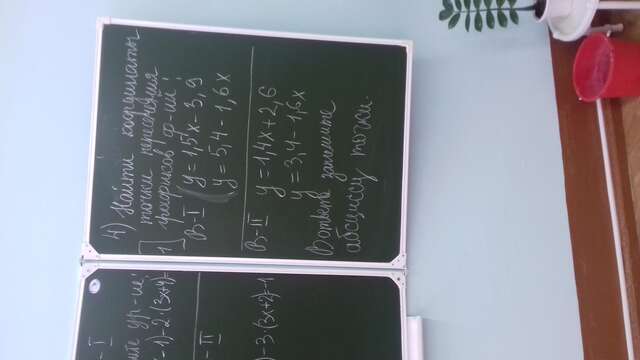 - I
ите ур-ие:
- 1) - 2·(3x+4)=
- II
) - 3·(3x+2)=-1
4) Найти координаты
точки пересечения
графиков ф-ий:
1
В-I y = 1,5x - 3,9
y = 5,4 - 1,6x
В-II y = 1,4x + 2,6
y = 3,4 - 1,6x
В ответе запишите
абсциссу точки.